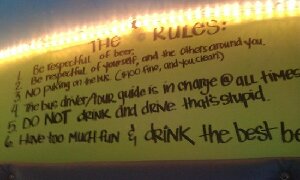 THE 6 RULES:
1. Be respectful of beer.
2. Be respectful of yourself, and the others around you.
3. NO puking on the bus. ($100 fine, and you clean)
4. The bus driver/tour guide is in charge @ all times
5. DO NOT drink and drive that's stupid.
6. Have too much fun & drink the best be